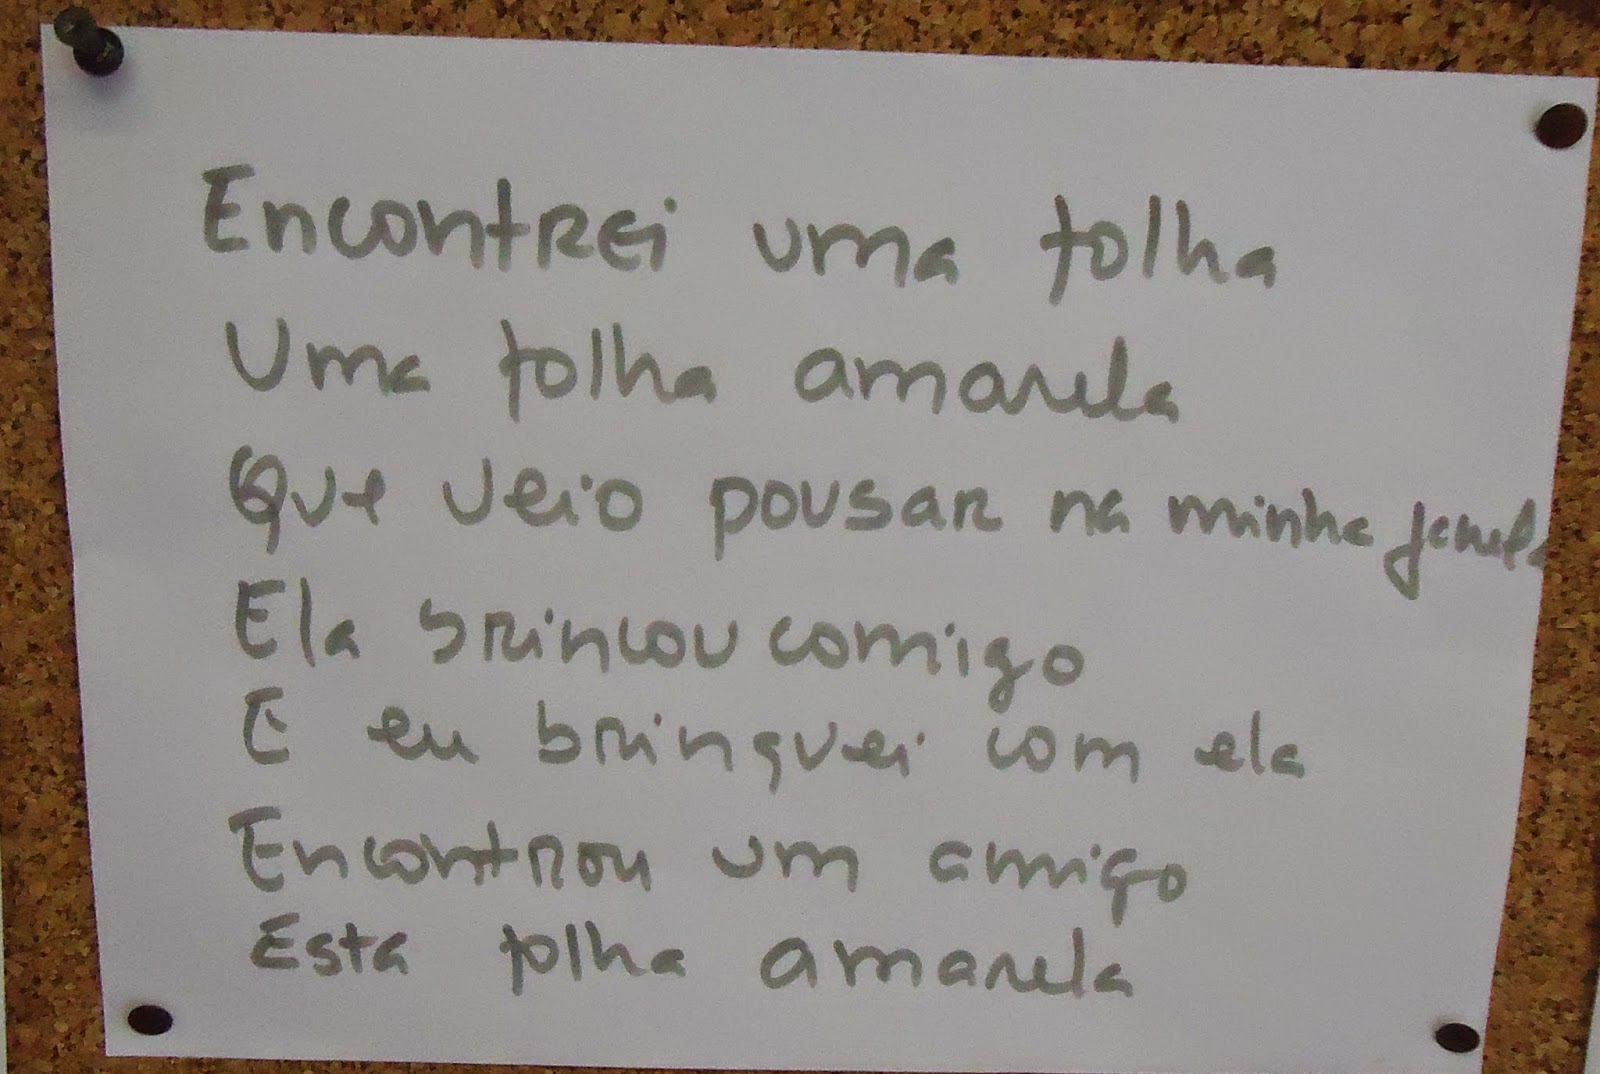 Encontrei uma folha
Uma folha amarela
Que veio pousar na minha janela
Ela brincou comigo
E eu brinquei com ela
Encontrou um amigo
Esta folha amarela